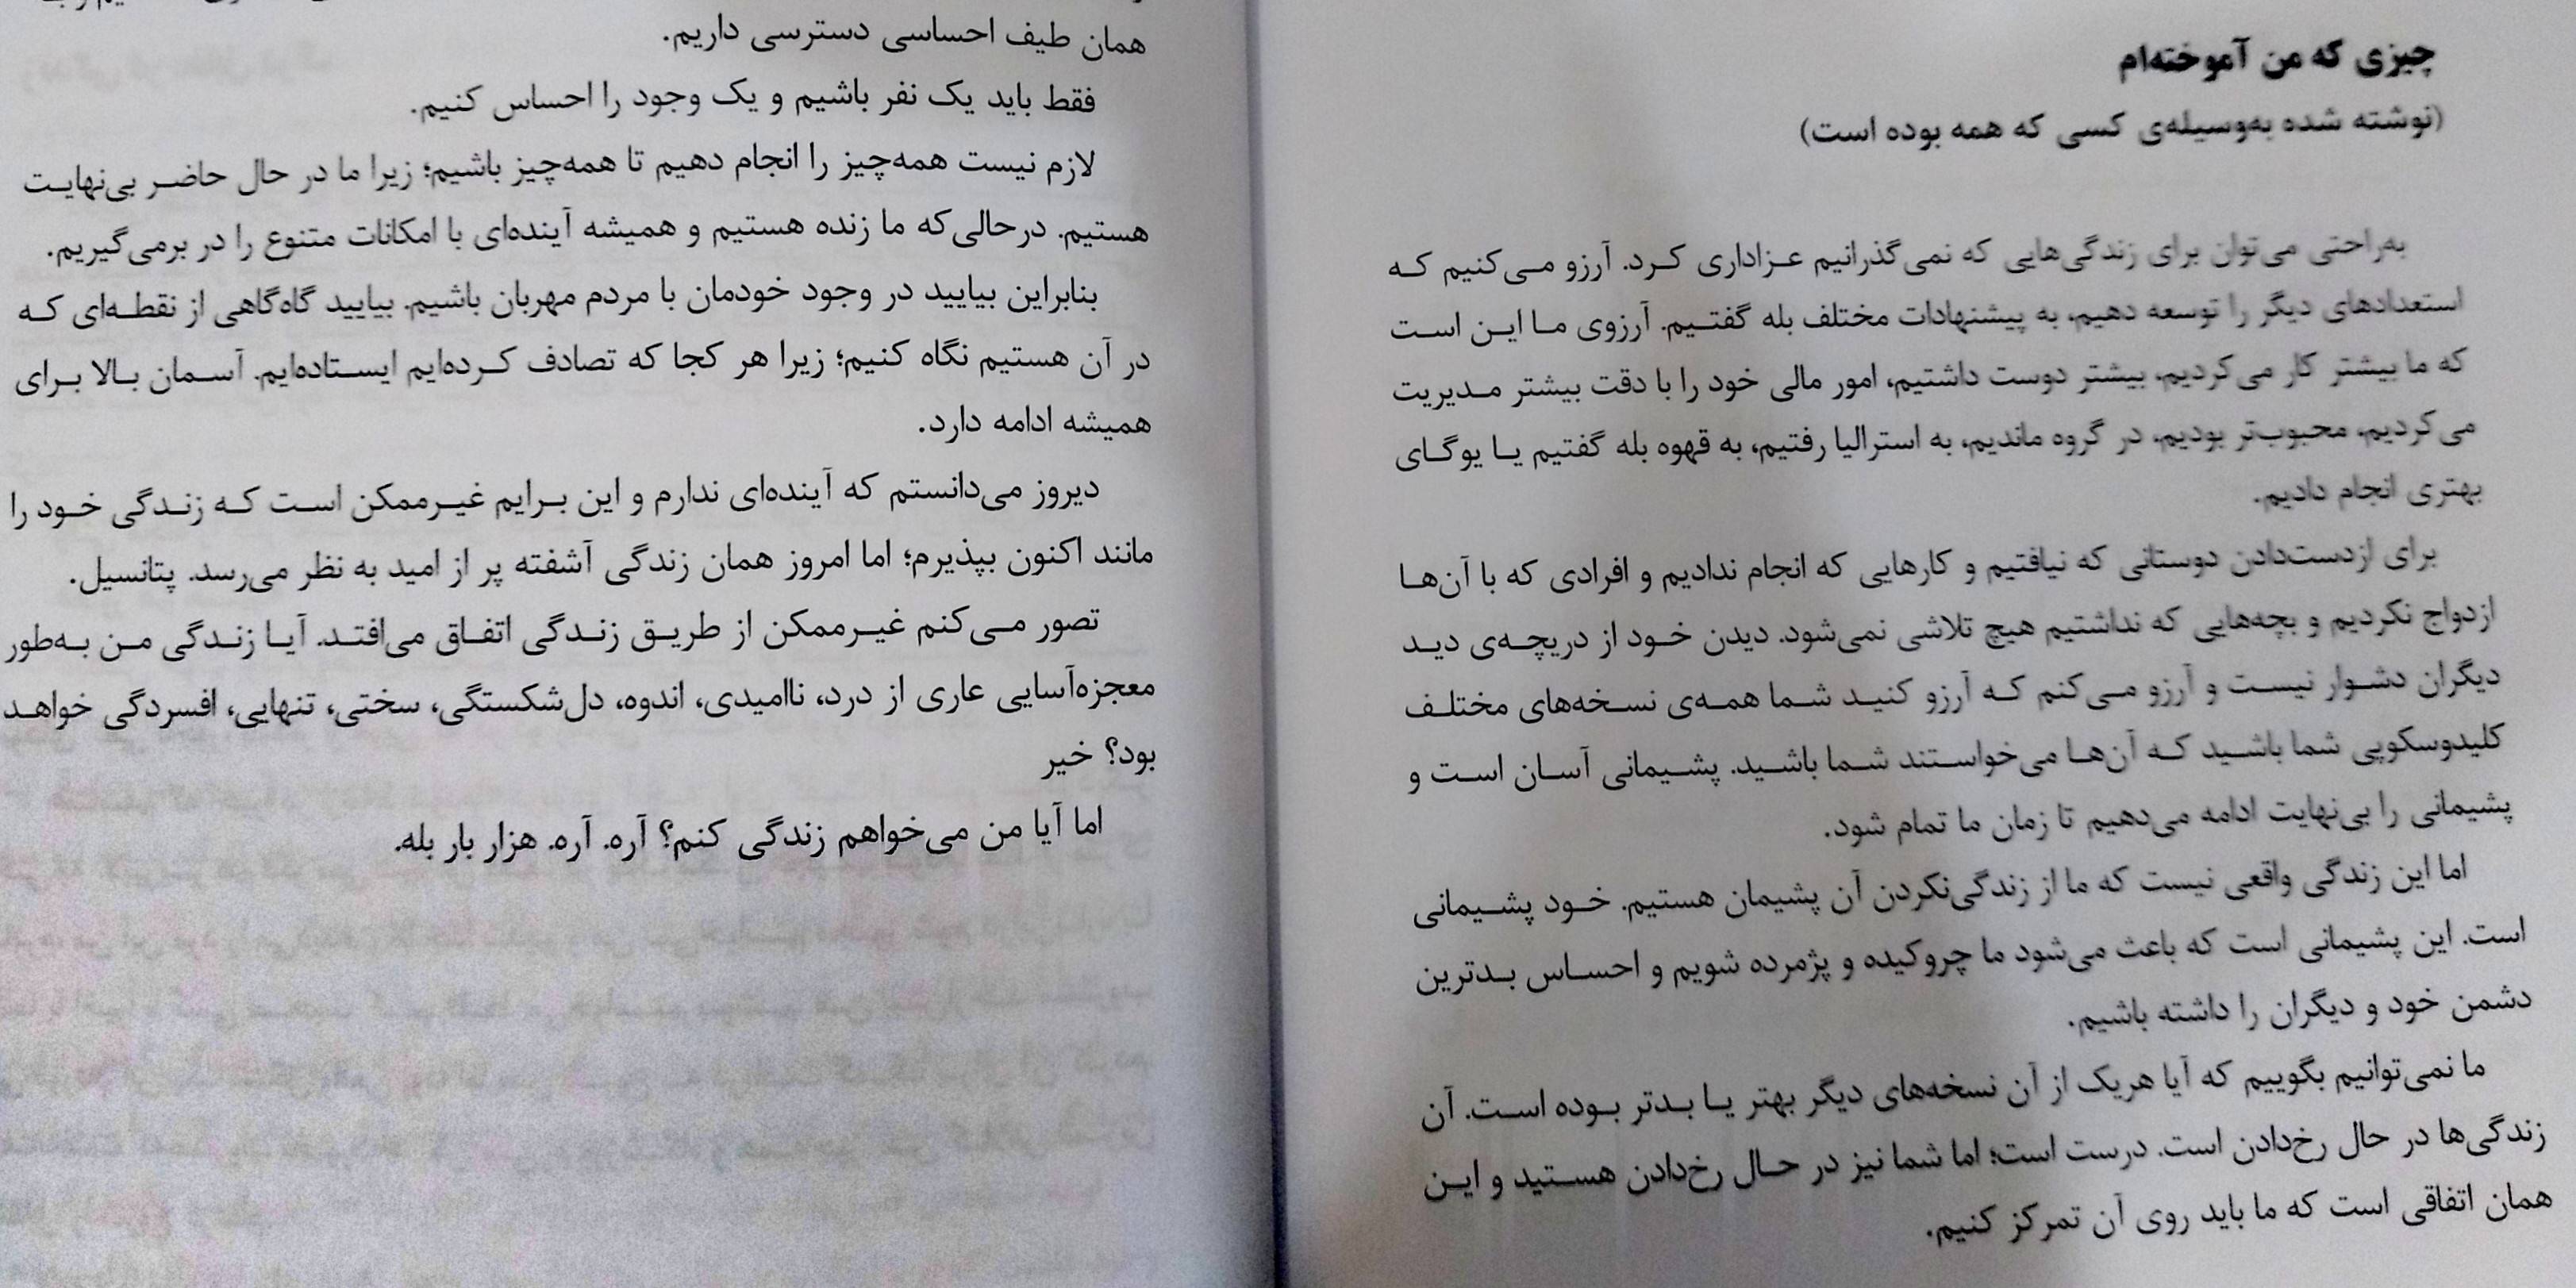 چیزی که من آموخته‌ام
(نوشته شده به‌وسیله‌ی کسی که همه بوده است)
به‌راحتی می‌توان برای زندگی‌هایی که نمی‌گذرانیم عزاداری کرد. آرزو می‌کنیم که
استعدادهای دیگر را توسعه دهیم، به پیشنهادات مختلف بله گفتیم. آرزوی ما این است
که ما بیشتر کار می‌کردیم، بیشتر دوست داشتیم، امور مالی خود را با دقت بیشتر مدیریت
می‌کردیم، محبوب‌تر بودیم، در گروه ماندیم، به استرالیا رفتیم، به قهوه بله گفتیم یا یوگای
بهتری انجام دادیم.
برای ازدست‌دادن دوستانی که نیافتیم و کارهایی که انجام ندادیم و افرادی که با آن‌ها
ازدواج نکردیم و بچه‌هایی که نداشتیم هیچ تلاشی نمی‌شود. دیدن خود از دریچه‌ی دید
دیگران دشوار نیست و آرزو می‌کنم که آرزو کنید شما همه‌ی نسخه‌های مختلف
کلیدوسکوپی شما باشید که آن‌ها می‌خواستند شما باشید. پشیمانی آسان است و
پشیمانی را بی‌نهایت ادامه می‌دهیم تا زمان ما تمام شود.
اما این زندگی واقعی نیست که ما از زندگی‌نکردن آن پشیمان هستیم. خود پشیمانی
است. این پشیمانی است که باعث می‌شود ما چروکیده و پژمرده شویم و احساس بدترین
دشمن خود و دیگران را داشته باشیم.
ما نمی‌توانیم بگوییم که آیا هریک از آن نسخه‌های دیگر بهتر یا بدتر بوده است. آن
زندگی‌ها در حال رخ‌دادن است. درست است؛ اما شما نیز در حال رخ‌دادن هستید و این
همان اتفاقی است که ما باید روی آن تمرکز کنیم.
همان طیف احساسی دسترسی داریم.
فقط باید یک نفر باشیم و یک وجود را احساس کنیم.
لازم نیست همه‌چیز را انجام دهیم تا همه‌چیز باشیم؛ زیرا ما در حال حاضر بی‌نهایت
هستیم. درحالی‌که ما زنده هستیم و همیشه آینده‌ای با امکانات متنوع را در برمی‌گیریم.
بنابراین بیایید در وجود خودمان با مردم مهربان باشیم. بیایید گاه‌گاهی از نقطه‌ای که
در آن هستیم نگاه کنیم؛ زیرا هر کجا که تصادف کرده‌ایم ایستاده‌ایم. آسمان بالا برای
همیشه ادامه دارد.
دیروز می‌دانستم که آینده‌ای ندارم و این برایم غیرممکن است که زندگی خود را
مانند اکنون بپذیرم؛ اما امروز همان زندگی آشفته پر از امید به نظر می‌رسد. پتانسیل.
تصور می‌کنم غیرممکن از طریق زندگی اتفاق می‌افتد. آیا زندگی من به‌طور
معجزه‌آسایی عاری از درد، ناامیدی، اندوه، دل‌شکستگی، سختی، تنهایی، افسردگی خواهد
بود؟ خیر
اما آیا من می‌خواهم زندگی کنم؟ آره. آره. هزار بار بله.